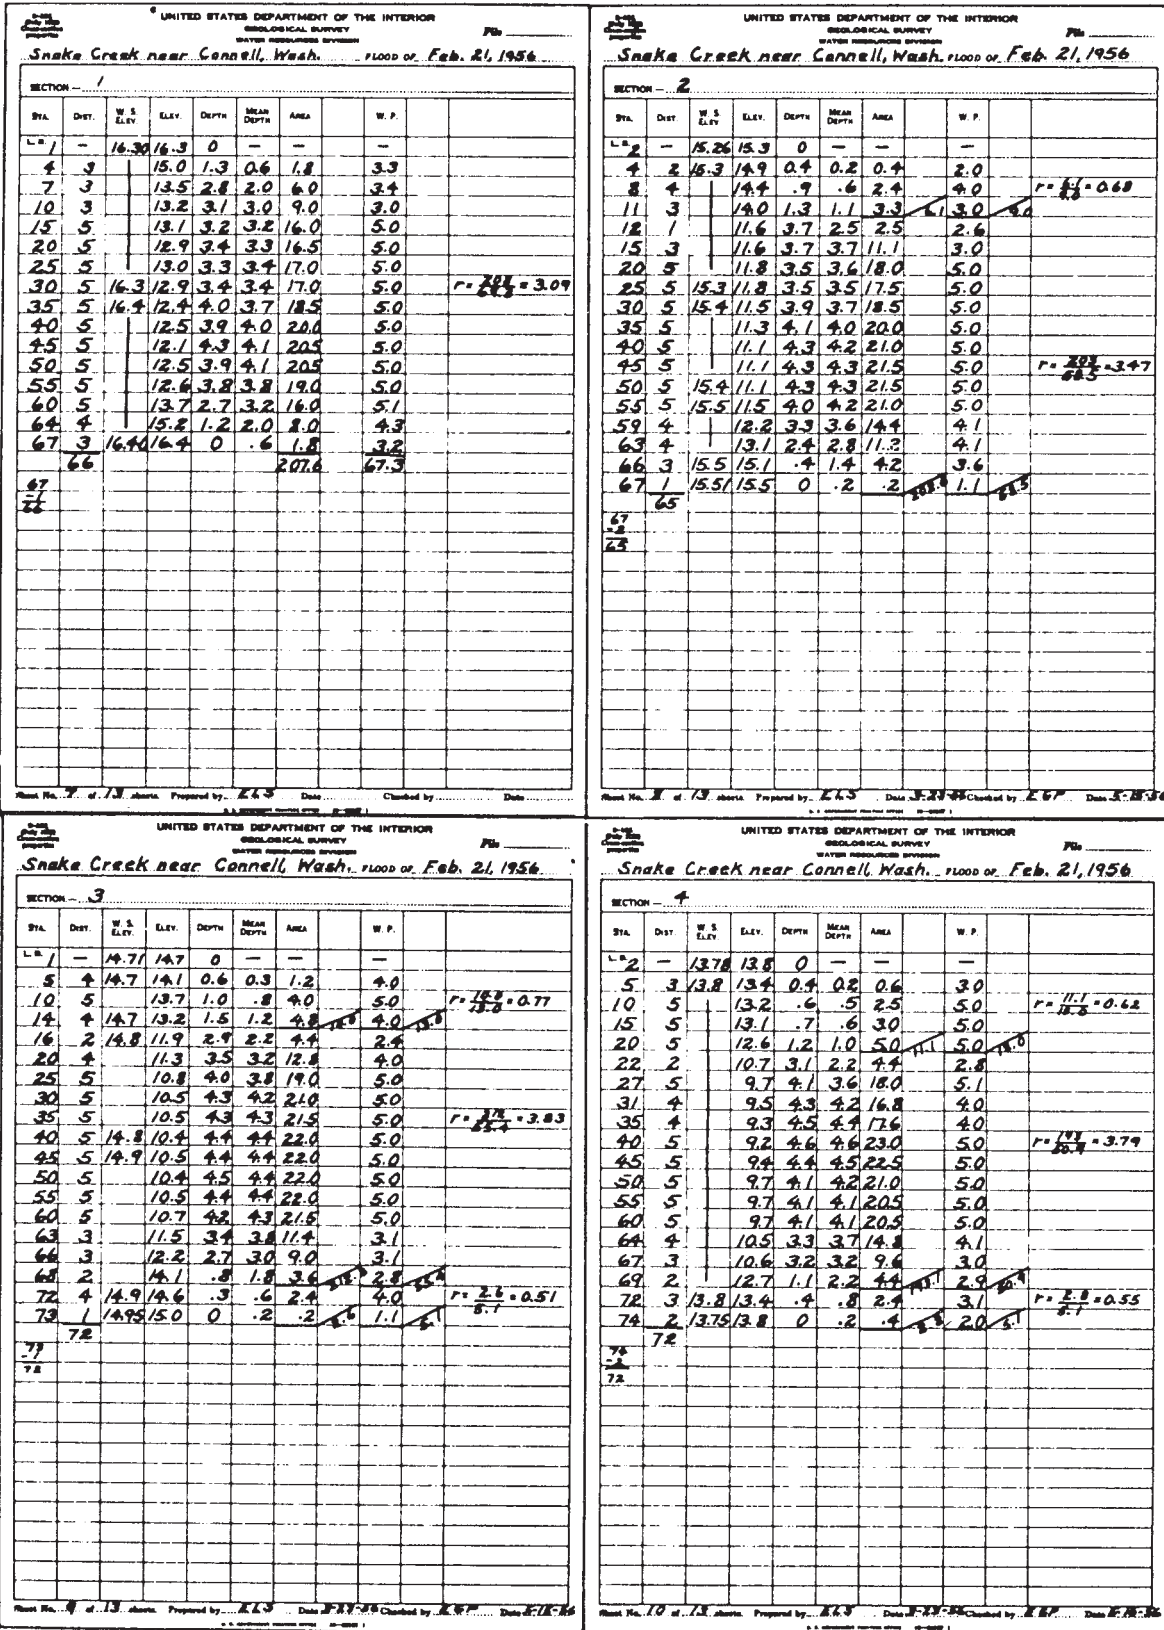 UNITED STATES DEPARTMENT OF THE INTERIOR
GEOLOGICAL SURVEY
WATER RESOURCES DIVISION
File
Snake Creek near Connell, Wash. FLOOD OF Feb. 21, 1956
SECTION - 1
STA. DIST. W. S. ELEV. ELEV. DEPTH MEAN DEPTH AREA W. P.
L. B. 1 - 16.30 16.3 0 - - -
4 3 15.0 1.3 0.6 1.8 3.3
7 3 13.5 2.8 2.0 6.0 3.4
10 3 13.2 3.1 3.0 9.0 3.0
15 5 13.1 3.2 3.2 16.0 5.0
20 5 12.9 3.4 3.3 16.5 5.0
25 5 13.0 3.3 3.4 17.0 5.0
30 5 16.3 12.9 3.4 3.4 17.0 5.0 r = = 3.09
35 5 16.4 12.4 4.0 3.7 18.5 5.0
40 5 12.5 3.9 4.0 20.0 5.0
45 5 12.1 4.3 4.1 20.5 5.0
50 5 12.5 3.9 4.1 20.5 5.0
55 5 12.6 3.8 3.8 19.0 5.0
60 5 13.7 2.7 3.2 16.0 5.1
64 4 15.2 1.2 2.0 8.0 4.3
67 3 16.40 16.4 0 .6 1.8 3.2
66 207.6 67.3
67
-1
66
Sheet No. 7 of 13 sheets Prepared by ELS Date Checked by Date
UNITED STATES DEPARTMENT OF THE INTERIOR
GEOLOGICAL SURVEY
WATER RESOURCES DIVISION
File
Snake Creek near Connell, Wash. FLOOD OF Feb. 21, 1956
SECTION - 2
STA. DIST. W. S. ELEV. ELEV. DEPTH MEAN DEPTH AREA W. P.
L. B. 2 - 15.26 15.3 0 - - -
4 2 15.3 14.9 0.4 0.2 0.4 2.0
8 4 14.4 .9 .6 2.4 4.0 r = = 0.68
11 3 14.0 1.3 1.1 3.3 6.1 3.0 9.0
12 1 11.6 3.7 2.5 2.5 2.6
15 3 11.6 3.7 3.7 11.1 3.0
20 5 11.8 3.5 3.6 18.0 5.0
25 5 15.3 11.8 3.5 3.5 17.5 5.0
30 5 15.4 11.5 3.9 3.7 18.5 5.0
35 5 11.3 4.1 4.0 20.0 5.0
40 5 11.1 4.3 4.2 21.0 5.0
45 5 11.1 4.3 4.3 21.5 5.0 r = = 3.47
50 5 15.4 11.1 4.3 4.3 21.5 5.0
55 5 15.5 11.5 4.0 4.2 21.0 5.0
59 4 12.2 3.3 3.6 14.4 4.1
63 4 13.1 2.4 2.8 11.2 4.1
66 3 15.5 15.1 .4 1.4 4.2 3.6
67 1 15.51 15.5 0 .2 .2 1.1
65
67
-2
65
Sheet No. 8 of 13 sheets Prepared by ELS Date 3-23-56 Checked by EGP Date 5-15-56
UNITED STATES DEPARTMENT OF THE INTERIOR
GEOLOGICAL SURVEY
WATER RESOURCES DIVISION
File
Snake Creek near Connell, Wash. FLOOD OF Feb. 21, 1956
SECTION - 3
STA. DIST. W. S. ELEV. ELEV. DEPTH MEAN DEPTH AREA W. P.
L. B. 1 - 14.71 14.7 0 - - -
5 4 14.7 14.1 0.6 0.3 1.2 4.0
10 5 13.7 1.0 .8 4.0 5.0 r = = 0.77
14 4 14.7 13.2 1.5 1.2 4.8 4.0 13.0
16 2 14.8 11.9 2.9 2.2 4.4 2.4
20 4 11.3 3.5 3.2 12.8 4.0
25 5 10.8 4.0 3.8 19.0 5.0
30 5 10.5 4.3 4.2 21.0 5.0
35 5 10.5 4.3 4.3 21.5 5.0 r = = 3.83
40 5 14.8 10.4 4.4 4.4 22.0 5.0
45 5 14.9 10.5 4.4 4.4 22.0 5.0
50 5 10.4 4.5 4.4 22.0 5.0
55 5 10.5 4.4 4.4 22.0 5.0
60 5 10.7 4.2 4.3 21.5 5.0
63 3 11.5 3.4 3.8 11.4 3.1
66 3 12.2 2.7 3.0 9.0 3.1
68 2 14.1 .8 1.8 3.6 2.8 55.4
72 4 14.9 14.6 .3 .6 2.4 4.0 r = 2.6/5.1 = 0.51
73 1 14.95 15.0 0 .2 .2 2.6 1.1 5.1
72
73
-1
72
Sheet No. 9 of 13 sheets Prepared by ELS Date 3-23-56 Checked by EGP Date 5-15-56
UNITED STATES DEPARTMENT OF THE INTERIOR
GEOLOGICAL SURVEY
WATER RESOURCES DIVISION
File
Snake Creek near Connell, Wash. FLOOD OF Feb. 21, 1956
SECTION - 4
STA. DIST. W. S. ELEV. ELEV. DEPTH MEAN DEPTH AREA W. P.
L. B. 2 - 13.78 13.8 0 - - -
5 3 13.8 13.4 0.4 0.2 0.6 3.0
10 5 13.2 .6 .5 2.5 5.0 r = 11.1/18.0 = 0.62
15 5 13.1 .7 .6 3.0 5.0
20 5 12.6 1.2 1.0 5.0 11.1 5.0 18.0
22 2 10.7 3.1 2.2 4.4 2.8
27 5 9.7 4.1 3.6 18.0 5.1
31 4 9.5 4.3 4.2 16.8 4.0
35 4 9.3 4.5 4.4 17.6 4.0
40 5 9.2 4.6 4.6 23.0 5.0 r = = 3.79
45 5 9.4 4.4 4.5 22.5 5.0
50 5 9.7 4.1 4.2 21.0 5.0
55 5 9.7 4.1 4.1 20.5 5.0
60 5 9.7 4.1 4.1 20.5 5.0
64 4 10.5 3.3 3.7 14.8 4.1
67 3 10.6 3.2 3.2 9.6 3.0
69 2 12.7 1.1 2.2 4.4 193.1 2.9 50.9
72 3 13.8 13.4 .4 .8 2.4 3.1 r = 2.8/5.1 = 0.55
74 2 13.75 13.8 0 .2 .4 2.8 2.0 5.1
72
74
-2
72
Sheet No. 10 of 13 sheets Prepared by ELS Date 3-23-56 Checked by EGP Date 5-15-56